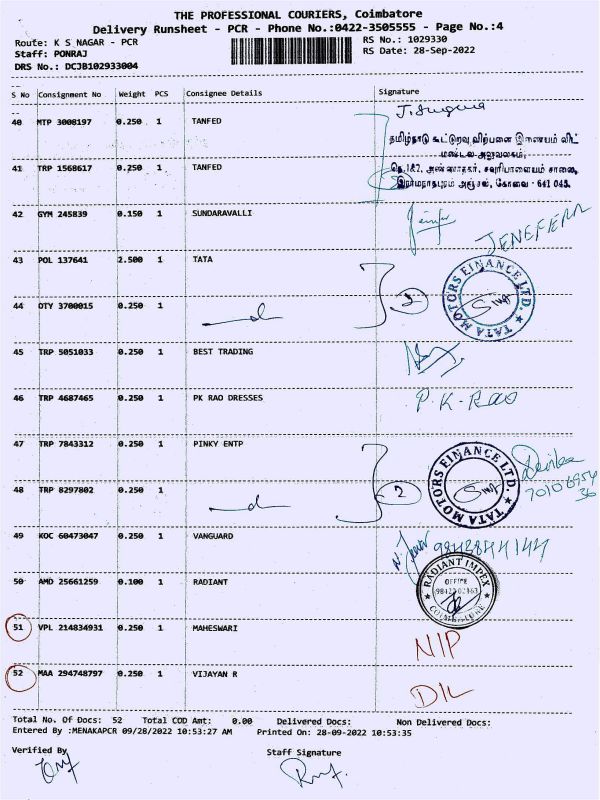 THE PROFESSIONAL COURIERS, Coimbatore
Delivery Runsheet - PCR - Phone No.:0422-3505555 - Page No.:4
Route: K S NAGAR - PCR
RS No.: 1029330
Staff: PONRAJ
RS Date: 28-Sep-2022
DRS No.: DCJB102933004
S No Consignment No Weight PCS Consignee Details Signature
40 MTP 3008197 0.250 1 TANFED
தமிழ்நாடு கூட்டுறவு விற்பனை இணையம் லிட்
மண்டல அலுவலகம்,
41 TRP 1568617 0.250 1 TANFED
அண்ணாநகர், சவுரிபாளையம் சாலை,
இராமநாதபுரம் அஞ்சல், கோவை - 641 045.
42 GYM 245839 0.150 1 SUNDARAVALLI
JENEFIERR
43 POL 137641 2.500 1 TATA
TATA MOTORS FINANCE LTD.
2
44 OTY 3700015 0.250 1
45 TRP 5051033 0.250 1 BEST TRADING
46 TRP 4687465 0.250 1 PK RAO DRESSES P.K-Rao
47 TRP 7843312 0.250 1 PINKY ENTP
TATA MOTORS FINANCE LTD.
48 TRP 8297802 0.250 1
2
49 KOC 60473047 0.250 1 VANGUARD
50 AMD 25661259 0.100 1 RADIANT
RADIANT IMPEX
OFFICE
COIMBATORE
51 VPL 214834931 0.250 1 MAHESWARI NIP
52 MAA 294748797 0.250 1 VIJAYAN R D/L
Total No. Of Docs: 52 Total COD Amt: 0.00 Delivered Docs: Non Delivered Docs:
Entered By :MENAKAPCR 09/28/2022 10:53:27 AM Printed On: 28-09-2022 10:53:35
Verified By
Staff Signature